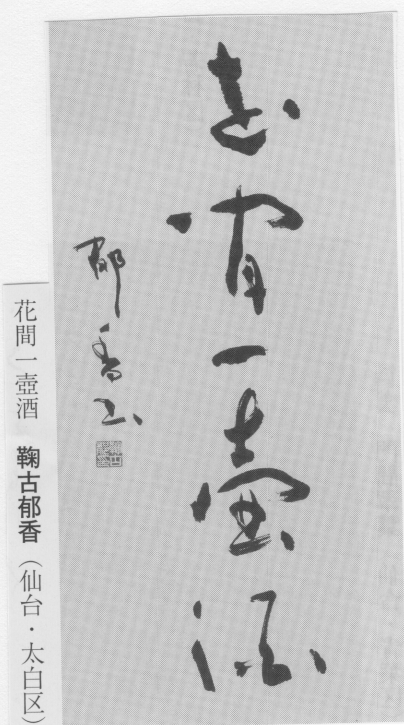 花間一壺酒
郁香
花間一壺酒 鞠古郁香（仙台・太白区）